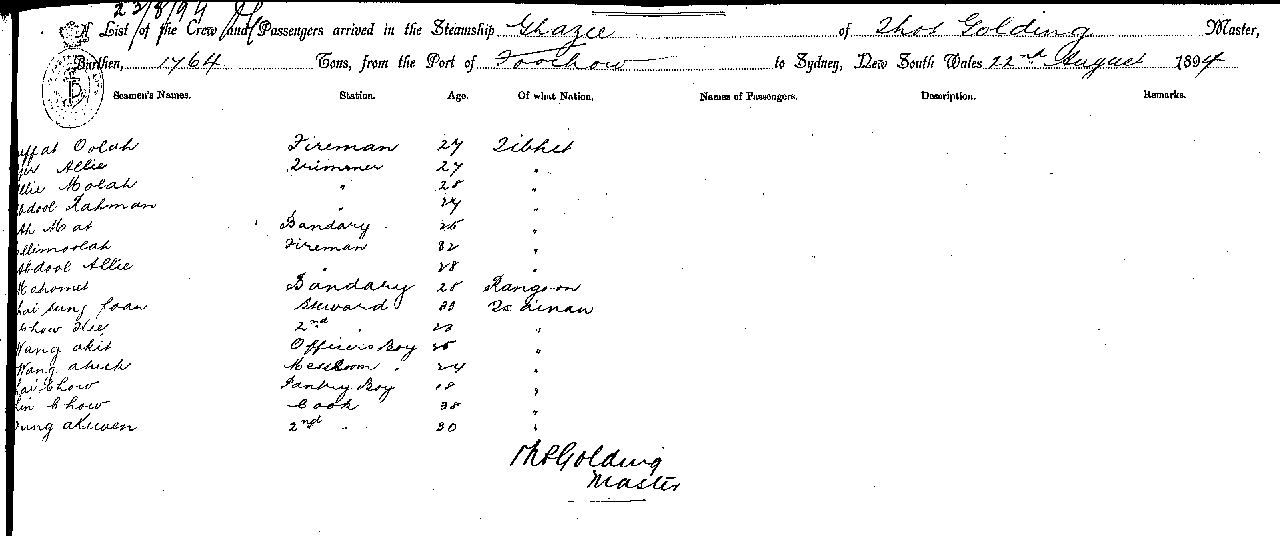 23/8/94
A List of the Crew and Passengers arrived in the Steamship Ghazee of Thos Golding Master,
Burthen, 1764 Tons, from the Port of Foochow to Sydney, New South Wales 22nd August 1894
Seamen's Names. Station. Age. Of what Nation. Names of Passengers. Description. Remarks.
Oolah Fireman 27 Tibhet
Allie Trimmer 27 "
Molah " 28 "
Rahman " 27 "
Bandary 25 "
Fireman 32 "
Abdool Allie " 28 "
Mahomed Bandary 28 Rangoon
Sung Steward 33
Chow 2nd " 23 "
Wang akit Officers Boy 25 "
Wang Messroom " 24 "
Chow Pantry Boy 18 "
Chow Cook 38 "
2nd " 30 "
Thos Golding
Master